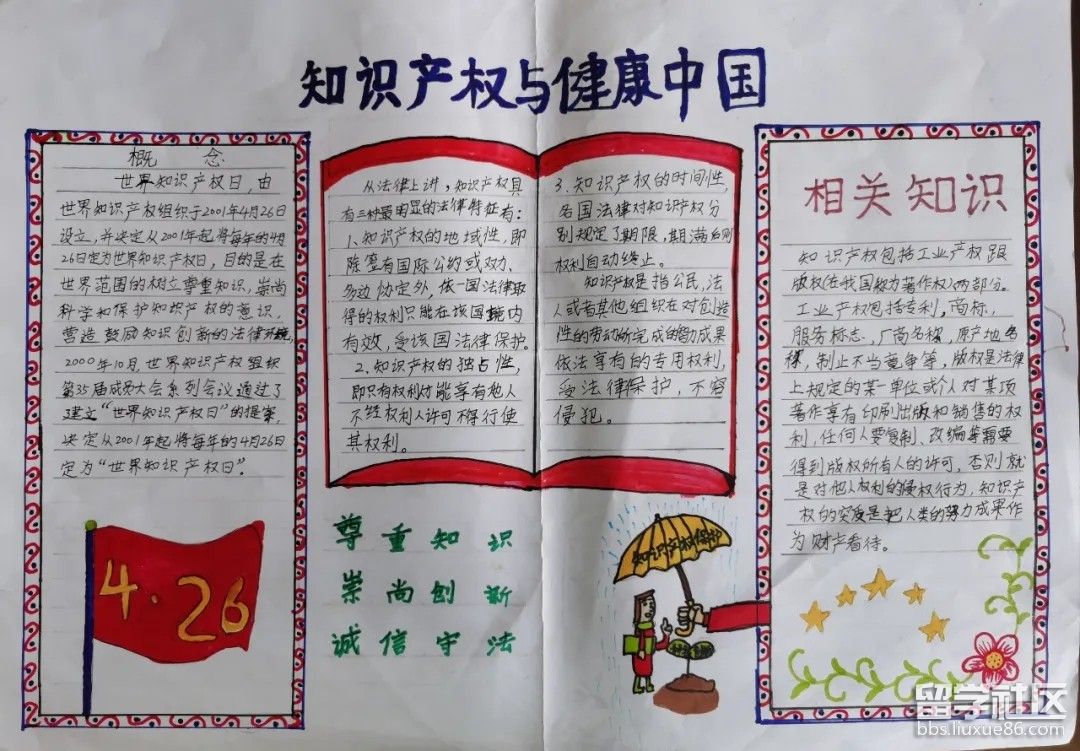 知识产权与健康中国
概 念
世界知识产权日,由
世界知识产权组织于2001年4月26日
设立,并决定从2001年起将每年的4月
26日定为世界知识产权日,目的是在
世界范围的树立尊重知识,崇尚
科学和保护知识产权的意识,
营造鼓励知识创新的法律环境,
2000年10月,世界知识产权组织
第35届成员大会系列会议通过了
建立“世界知识产权日”的提案,
决定从2001年起将每年的4月26日
定为“世界知识产权日”.
4·26
从法律上讲,知识产权具
有三种最明显的法律特征有:
1、知识产权的地域性,即
除签有国际公约或双方、
多边协定外,依一国法律取
得的权利只能在该国境内
有效,受该国法律保护.
2、知识产权的独占性,
即只有权利才能享有他人
不经权利人许可不得行使
其权利.
3、知识产权的时间性,
各国法律对知识产权分
别规定了期限,期满后则
权利自动终止.
知识产权是指公民、法
人或者其他组织在对创造
性的劳动所完成的智力成果
依法享有的专用权利,
受法律保护,不容
侵犯.
尊重知识
崇尚创新
诚信守法
知识产权保护
相关知识
知识产权包括工业产权跟
版权(在我国称为著作权)两部分.
工业产权包括专利,商标,
服务标志,厂商名称,原产地名
称,制止不当竞争等,版权是法律
上规定的某一单位或个人对某项
著作享有印刷出版和销售的权
利,任何人要复制、改编等需要
得到版权所有人的许可,否则就
是对他人权利的侵权行为,知识产
权的实质是把人类的努力成果作
为财产看待.
留学社区
bbs.liuxue86.com